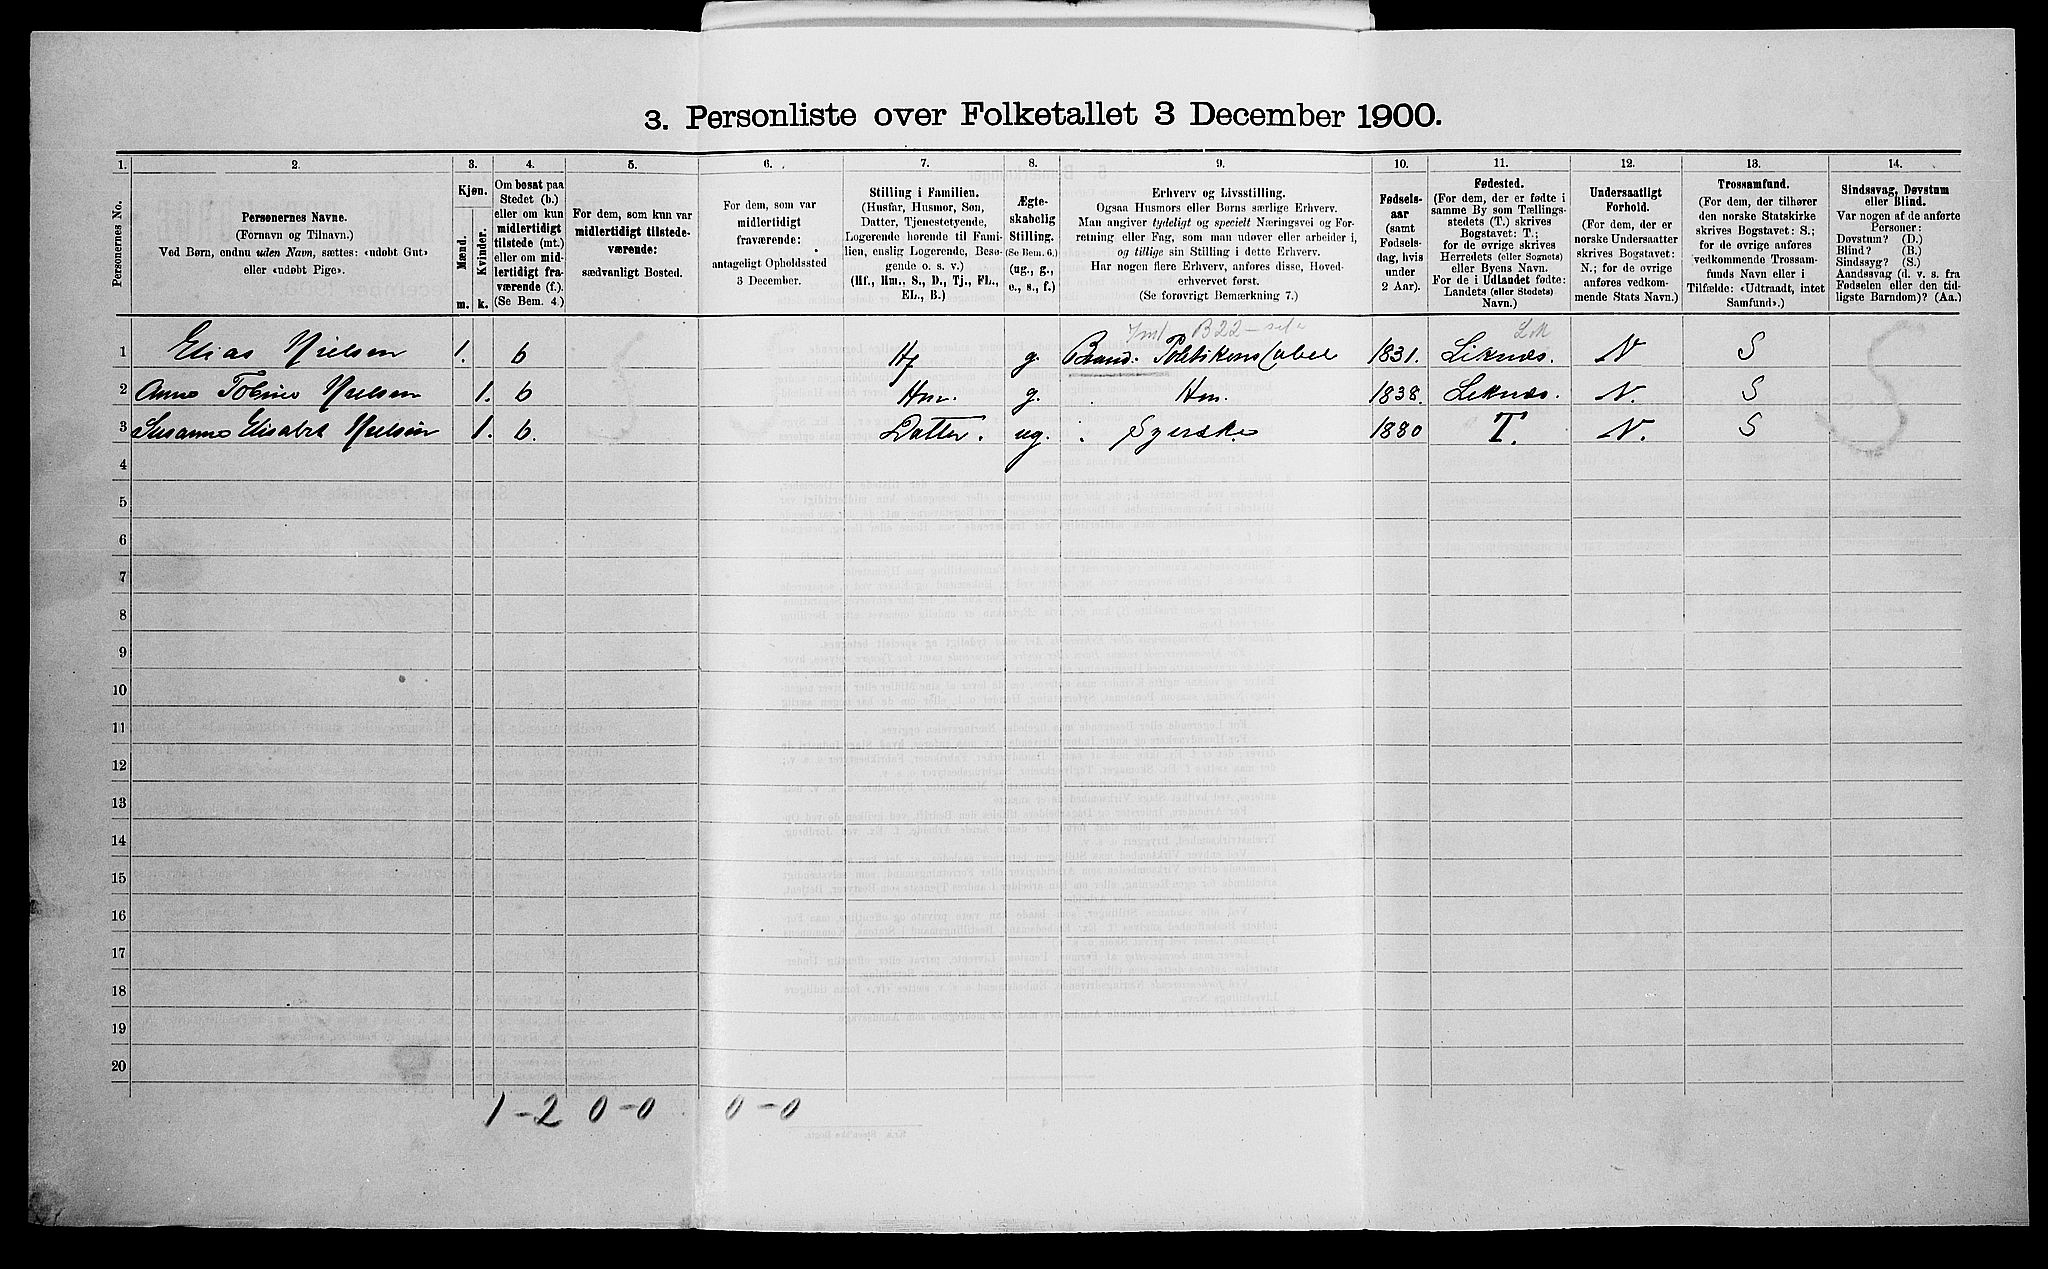 3. Personliste over Folketallet 3 December 1900.
1. 2. 3. 4. 5. 6. 7. 8. 9. 10. 11. 12. 13. 14.
Personernes No.
Personernes Navne.
(Fornavn og Tilnavn.)
Ved Børn, endnu uden Navn, sættes: «udøbt Gut»
eller «udøbt Pige».
Kjøn.
Mænd.
Kvinder.
m. k.
Om bosat paa
Stedet (b.)
eller om kun
midlertidigt
tilstede (mt.)
eller om mid-
lertidigt fra-
værende (f.)
(Se Bem. 4.)
For dem, som kun var
midlertidigt tilstede-
værende:
sædvanligt Bosted.
For dem, som var
midlertidigt
fraværende:
antageligt Opholdssted
3 December.
Stilling i Familien.
(Husfar, Husmor, Søn,
Datter, Tjenestetyende,
Logerende hørende til Fami-
lien, enslig Logerende, Besø-
gende o. s. v.)
(Hf., Hm., S., D., Tj., FL.,
EL., B.)
Ægte-
skabelig
Stilling.
(Se Bem. 6.)
(ug., g.,
e., s., f.)
Erhverv og Livsstilling.
Ogsaa Husmors eller Børns særlige Erhverv.
Man angiver tydeligt og specielt Næringsvei og For-
retning eller Fag, som man udøver eller arbeider i,
og tillige sin Stilling i dette Erhverv.
Har nogen flere Erhverv, anføres disse, Hoved-
erhvervet først.
(Se forøvrigt Bemærkning 7.)
Fødsels-
aar
(samt
Fødsels-
dag, hvis
under
2 Aar).
Fødested.
(For dem, der er fødte i
samme By som Tællings-
stedets (T.) skrives
Bogstavet: T.;
for de øvrige skrives
Herredets (eller Sognets)
eller Byens Navn.
For de i Udlandet fødte:
Landets (eller Stedets)
Navn.)
Undersaatligt
Forhold.
(For dem, der er
norske Undersaatter
skrives Bogstavet:
N.; for de øvrige
anføres vedkom-
mende Stats Navn.)
Trossamfund.
(For dem, der tilhører
den norske Statskirke
skrives Bogstavet: S.;
for de øvrige anføres
vedkommende Trossam-
funds Navn eller i
Tilfælde: «Udtraadt, intet
Samfund».)
Sindssvag, Døvstum
eller Blind.
Var nogen af de anførte
Personer:
Døvstum? (D.)
Blind? (B.)
Sindssyg? (S.)
Aandssvag (d. v. s. fra
Fødselen eller den tid-
ligste Barndom)? (Aa.)
B22
1 Elias Nielsen 1. b Hf g. Brand. 1831. Liknæs. N S
2 Anne Tobine Nielsen 1. b Hm. g. Hm. 1838. Liknæs. N. S
3 Susanne Elisabet Nielsen 1. b. Datter. ug. Syerske 1880 T. N. S
4
5
6
7
8
9
10
11
12
13
14
15
16
17
18
19
20
1 - 2 0 - 0 0 - 0